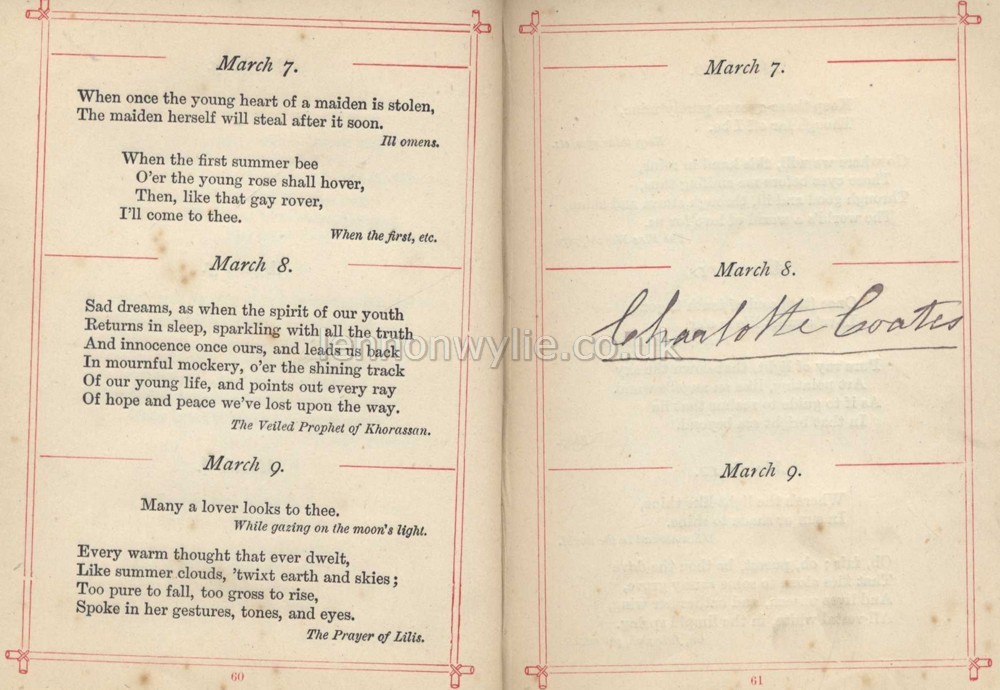 March 7.
When once the young heart of a maiden is stolen,
The maiden herself will steal after it soon.
Ill omens.
When the first summer bee
O'er the young rose shall hover,
Then, like that gay rover,
I'll come to thee.
When the first, etc.
March 8.
Sad dreams, as when the spirit of our youth
Returns in sleep, sparkling with all the truth
And innocence once ours, and leads us back
In mournful mockery, o'er the shining track
Of our young life, and points out every ray
Of hope and peace we've lost upon the way.
The Veiled Prophet of Khorassan.
March 9.
Many a lover looks to thee.
While gazing on the moon's light.
Every warm thought that ever dwelt,
Like summer clouds, 'twixt earth and skies;
Too pure to fall, too gross to rise,
Spoke in her gestures, tones, and eyes.
The Prayer of Lilis.
60
March 7.
March 8.
Charlotte Coates
March 9.
61
lennonwylie.co.uk